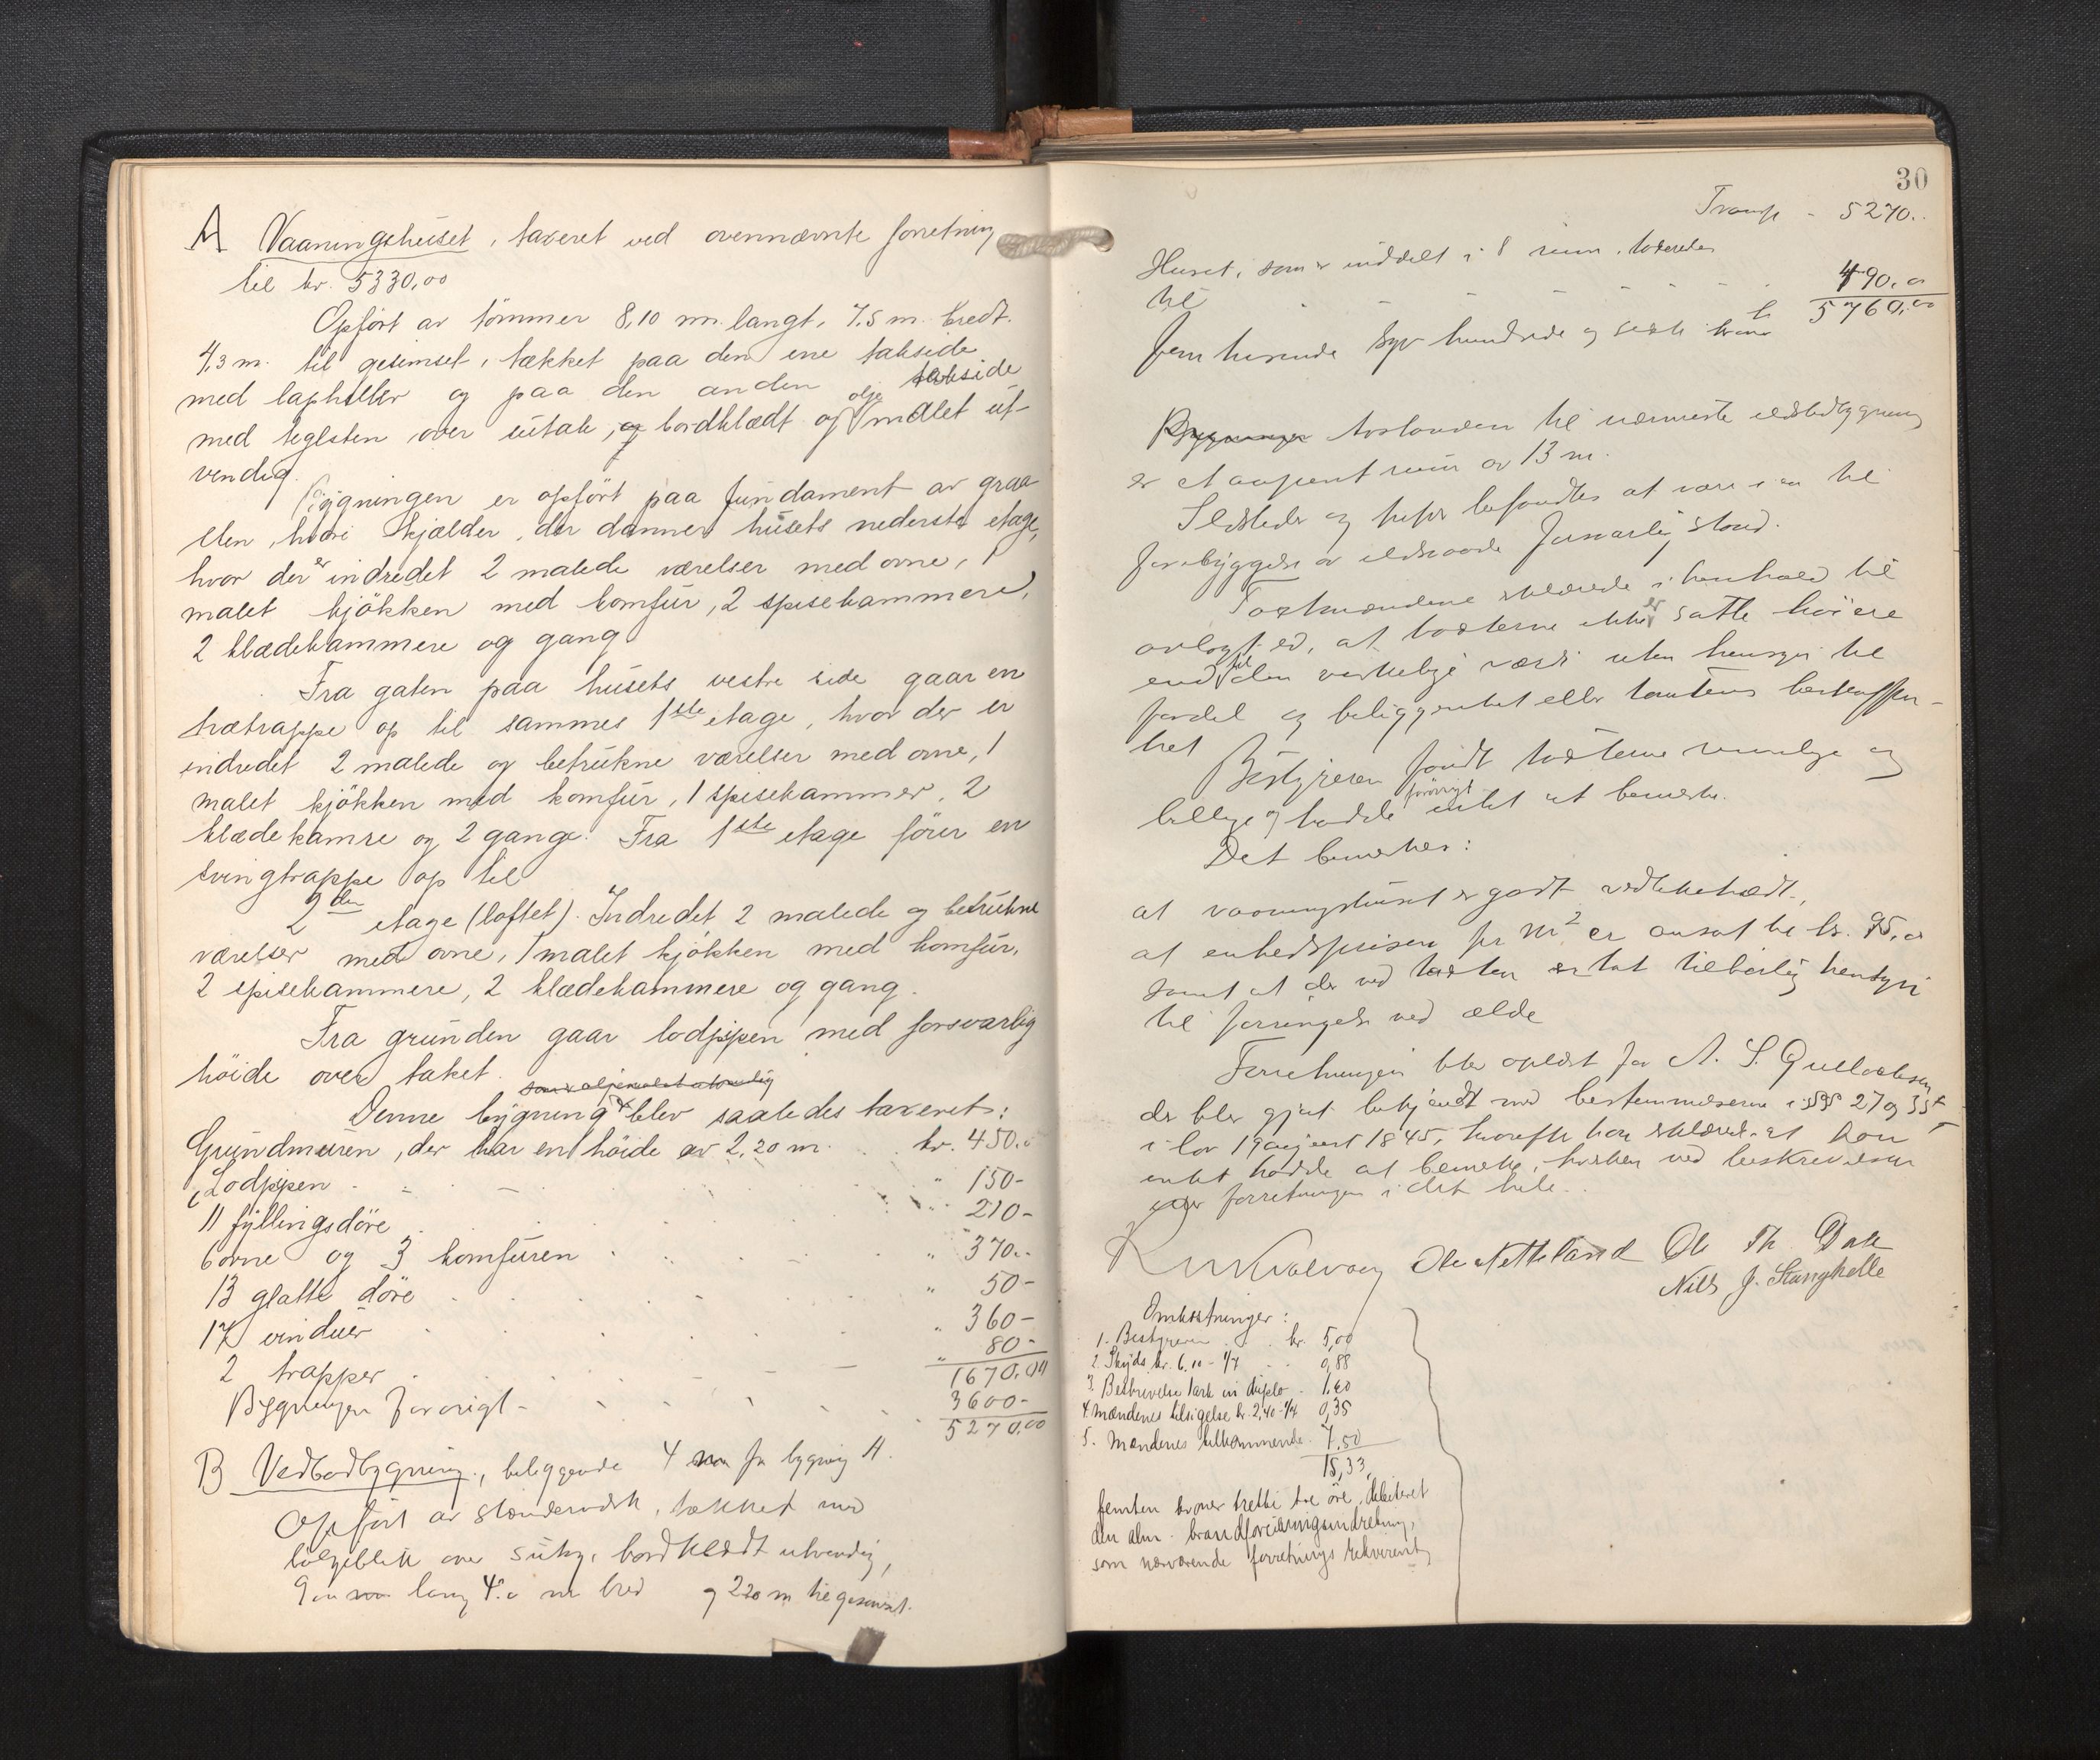 A Vaaningshuset, taxeret ved ovennævnte forretning
til kr. 5330,00
Opført av tømmer 8,10 m. langt, 7,5 m. bredt.
4,3 m. til gesimset, tækket paa den ene takside
med lapheller og paa den anden takside
med teglsten over sutak, og bordklædt og olje malet ut-
vendig.
Bygningen er opført paa fundament av graa-
sten, hvori kjælder, der danner husets nederste etage,
hvor der er indredet 2 malede værelser med ovne, 1
malet kjøkken med komfur, 2 spisekammere,
2 klædekammere og gang
Fra gaten paa husets vestre side gaar en
trætrappe op til sammes 1ste etage, hvor der er
indredet 2 malede og betrukne værelser med ovne, 1
malet kjøkken med komfur, 1 spisekammer, 2
klædekamre og 2 gange. Fra 1ste etage fører en
svingtrappe op til
2den etage (loftet). Indredet 2 malede og betrukne
værelser med ovne, 1 malet kjøkken med komfur,
2 spisekammere, 2 klædekammere og gang.
Fra grunden gaar lodpipen med forsvarlig
høide over taket.
Denne bygning blev saaledes taxeret:
Grundmuren, der har en høide av 2,20 m. kr. 450.-
Lodpipen - " 150-
11 fyllingsdøre " 210-
6 ovne og 3 komfuren " 370.-
13 glatte døre " 50-
17 vinduer " 360-
2 trapper " 80-
1670,00
Bygningen forøvrigt - 3600-
5270,00
B Vedbodbygning, beliggende 4 m fra bygning A.
Opført av stenderverk, tækket med
bølgeblik over sutag, bordklædt utvendig,
lang 4.0 m bred og 2.20 m til gesimset.
30
Transp. - 5270.-
Huset, som er inddelt i 8 rum, taxeredes
til - - - - 490.00
kr 5760,00
fem tusende syv hundrede og seksti kroner
Avstanden til nærmeste ildstedbygning
er et aapent rum av 13 m.
Ildsteder og piper befandtes at være i en til
forebyggelse av ildsvaade forsvarlig stand.
Taxtmændene erklærede i henhold til
avlagt ed, at taxterne ikke er satte høiere
end til den virkelige værdi uten hensyn til
fordel og beliggenhet eller tomtens beskaffen-
het
Bestyreren fandt taxterne rimelige og
billige og hadde forøvrigt intet at bemerke.
Det bemerkes:
at vaaningshuset er godt vedlikeholdt,
at enhedsprisen pr m2 er ansat til kr. 95,00
samt at der ved taxten er tat tilbørlig hensyn
til forringelse ved ælde
Forretningen blev oplæst for A. S. Gullachsen,
der blev gjort bekjendt med bestemmelserne i §§ 27 og 35
i lov 19 august 1845, hvorefter han erklærede at han
intet hadde at bemerke, hverken ved beskrivelsen
eller forretningen i det hele.
Ole Netteland Ole Th. Dale
Nils J. Stanghelle
Omkostninger:
1. Bestyreren . . kr. 5,00
2. Skyds kr. 6.10 - 1/7 . . 0,88
3. Beskrivelse 1 ark in duplo - 1,60
4. Mændenes tilsigelse kr. 2,40 - 1/7 0,35
5. Mændenes tilkommende. 7,50
15,33,
femten kroner tretti tre øre, debiteret
den alm. brandforsikringsindretning,
som nærværende forretnings rekvirent